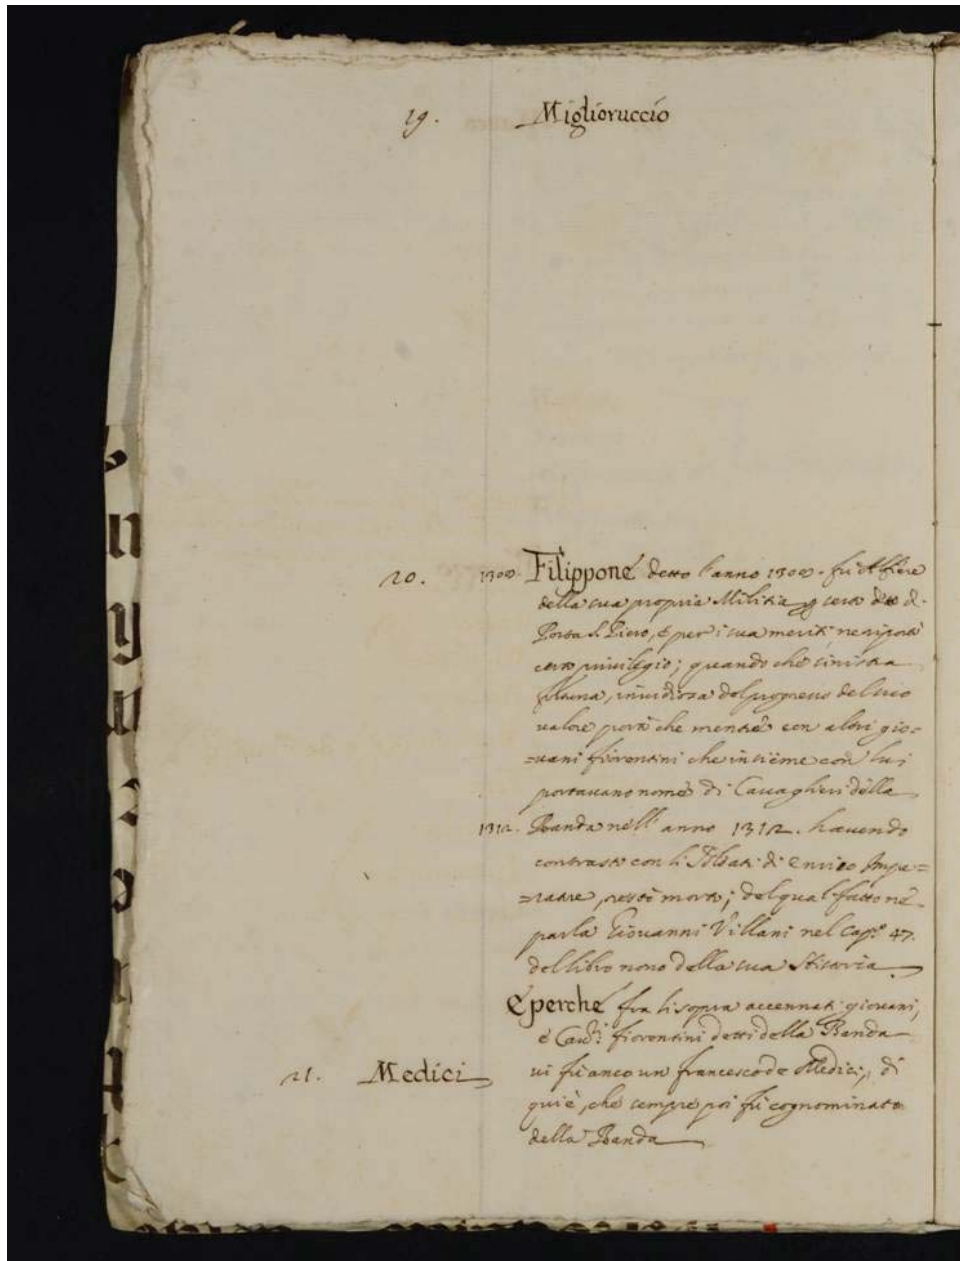 19. Miglioruccio
20. 1300. Filippone detto l'anno 1300. fù Alfiere
della sua propria Militia sesto d.
Porta S. Piero, è per i sua meriti ne riportò
certo privilegio; quando che sinistra
fortuna, invidiosa del progresso del suo
valore portò che mentre con altri gio=
=vani fiorentini che insieme con lui
portavano nome di Cavaglieri della
1312. Banda nell'anno 1312. havendo
contrasto con li Soldati di Enrico Impe=
=ratore, restò morto; del qual fatto ne
parla Giovanni Villani nel Cap.º 47.
del libro nono della sua Historia.
È perche fra li sopra accennati giovani,
è Cav.ri fiorentini detti della Banda
21. Medici vi fù anco un francesco de Medici, di
qui è, che sempre poi fù cognominato
della Banda